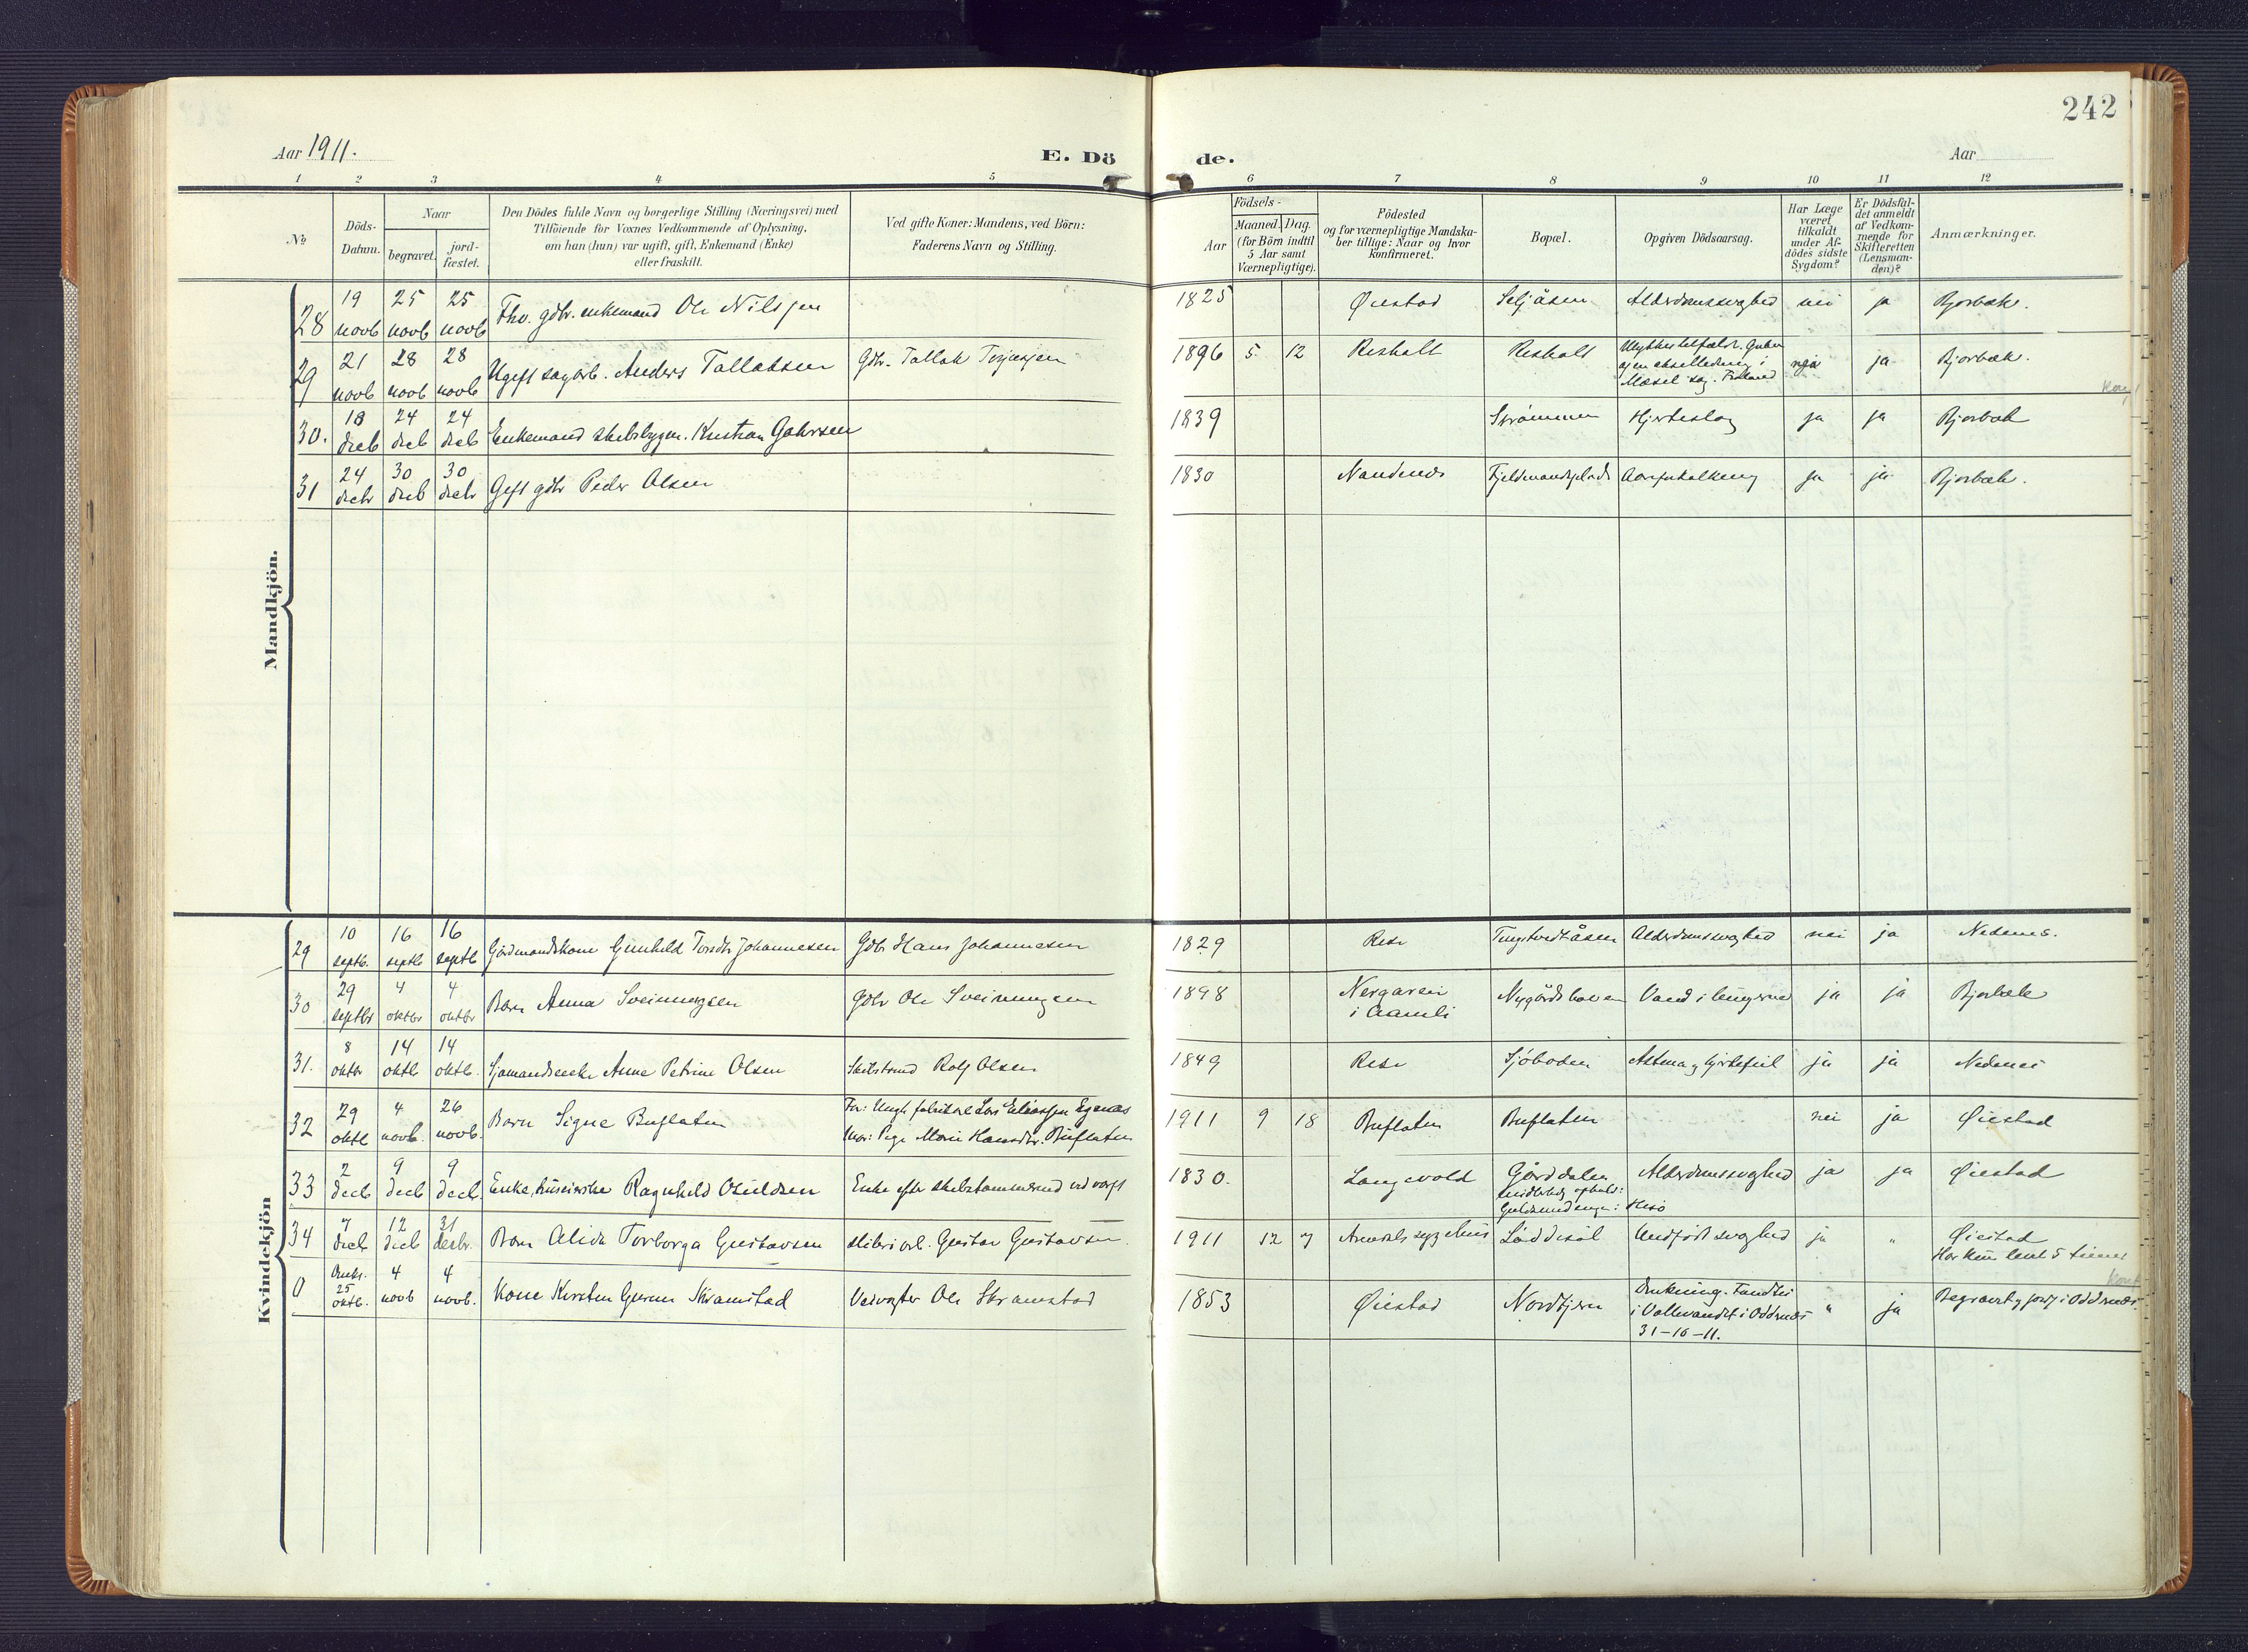 242
Aar 1911.
E. Dö de.
Aar
1 2 3 4 5 6 7 8 9 10 11 12
No
Döds-
Datum.
Naar
begravet.
jord-
fæstet.
Den Dödes fulde Navn og borgerlige Stilling (Næringsvei) med
Tilföiende for Voxnes Vedkommende af Oplysning,
om han (hun) var ugift, gift, Enkemand (Enke)
eller fraskilt.
Ved gifte Koner: Mandens, ved Börn:
Faderens Navn og Stilling.
Födsels-
Aar
Maaned. Dag.
(for Börn indtil
5 Aar samt
Værnepligtige).
Födested
og for værnepligtige Mandska-
ber tillige: Naar og hvor
konfirmeret.
Bopæl.
Opgiven Dödsaarsag.
Har Læge
været
tilkaldt
under Af-
dödes sidste
Sygdom?
Er Dödsfal-
det anmeldt
af Vedkom-
mende for
Skifteretten
(Lensman-
den)?
Anmærkninger.
Mandkjön.
28 19 novb 25 novb 25 novb Fhv. gdbr. enkemand Ole Nilssen 1825 Øiestad Seljåsen Alderdomssvaghed nei ja Bjorbæk.
29 21 novb 28 novb 28 novb Ugift sagarb. Anders Tallaksen Gdbr. Tallak Terjesen 1896 5 12 Reskall Reskall
Mæsel sag. Froland nei ja Bjorbæk.
30. 18 decb 24 decb 24 decb Enkemand skibsbygm. Kristian Gahrsen 1839 Strømmen Hjerteslag ja ja Bjorbæk
31 24 decbr 30 decb 30 decbr Gift gdbr Peder Olsen 1830 Nandenes Fjeldmandsplads Aareforkalkning ja ja Bjorbæk.
Kvindekjön
29 10 septb. 16 septb 16 septb Gårdmandskone Gunhild Torsdtr Johannesen Gdbr Hans Johannesen 1829 Rise Tingstvedtåsen Alderdomssvaghed nei ja Nedenes.
30 29 septbr 4 oktbr 4 oktbr Barn Anna Sveinungsen Gdbr Ole Sveinungsen 1898 Nergarei
i Aamli Nygårdshaven Vand i lungerne ja ja Bjorbæk
31. 8 oktbr 14 oktb 14 oktb. Sjømandsenke Anne Petrine Olsen Skibstmd Rolf Olsen 1849 Rise Sjøboden Astma og hjertefeil ja ja Nedenes
32 29 oktb 4 novb. 26 novb. Barn Signe Buflaten Far: Ungk. fabrikarb Lars Eliassen Egenæs
Mor: Pige Marie Hansdtr. Buflaten 1911 9 18 Buflaten Buflaten nei ja Øiestad
33 2 decb 9 decb 9 decb. Enke, huseierske Ragnhild Osuldsen Enke efter skibstømmermd 1830. Langevold Gårddalen
midlertidig ophold:
Guldsmedengen: Hisø Alderdomssvaghed ja ja Øiestad
34 7 decb 12 decb 31 decbr. Barn Alida Torborga Gustavsen skiberiarb. Gustav Gustavsen. 1911 12 7 Arendals sygehus Løddesøl Medfødt svaghed ja " Øiestad
Har kun levt 5 timer
0 Omkr. 25 oktb. 4 novb 4 novb. Kone Kirsten Gurine Skramstad Veivogter Ole Skramstad 1853 Øiestad Nordtjern Drukning. Fandtes
i Vollevandet i Oddernes
31-10-11. " ja Begravet og jordf. i Oddernes.